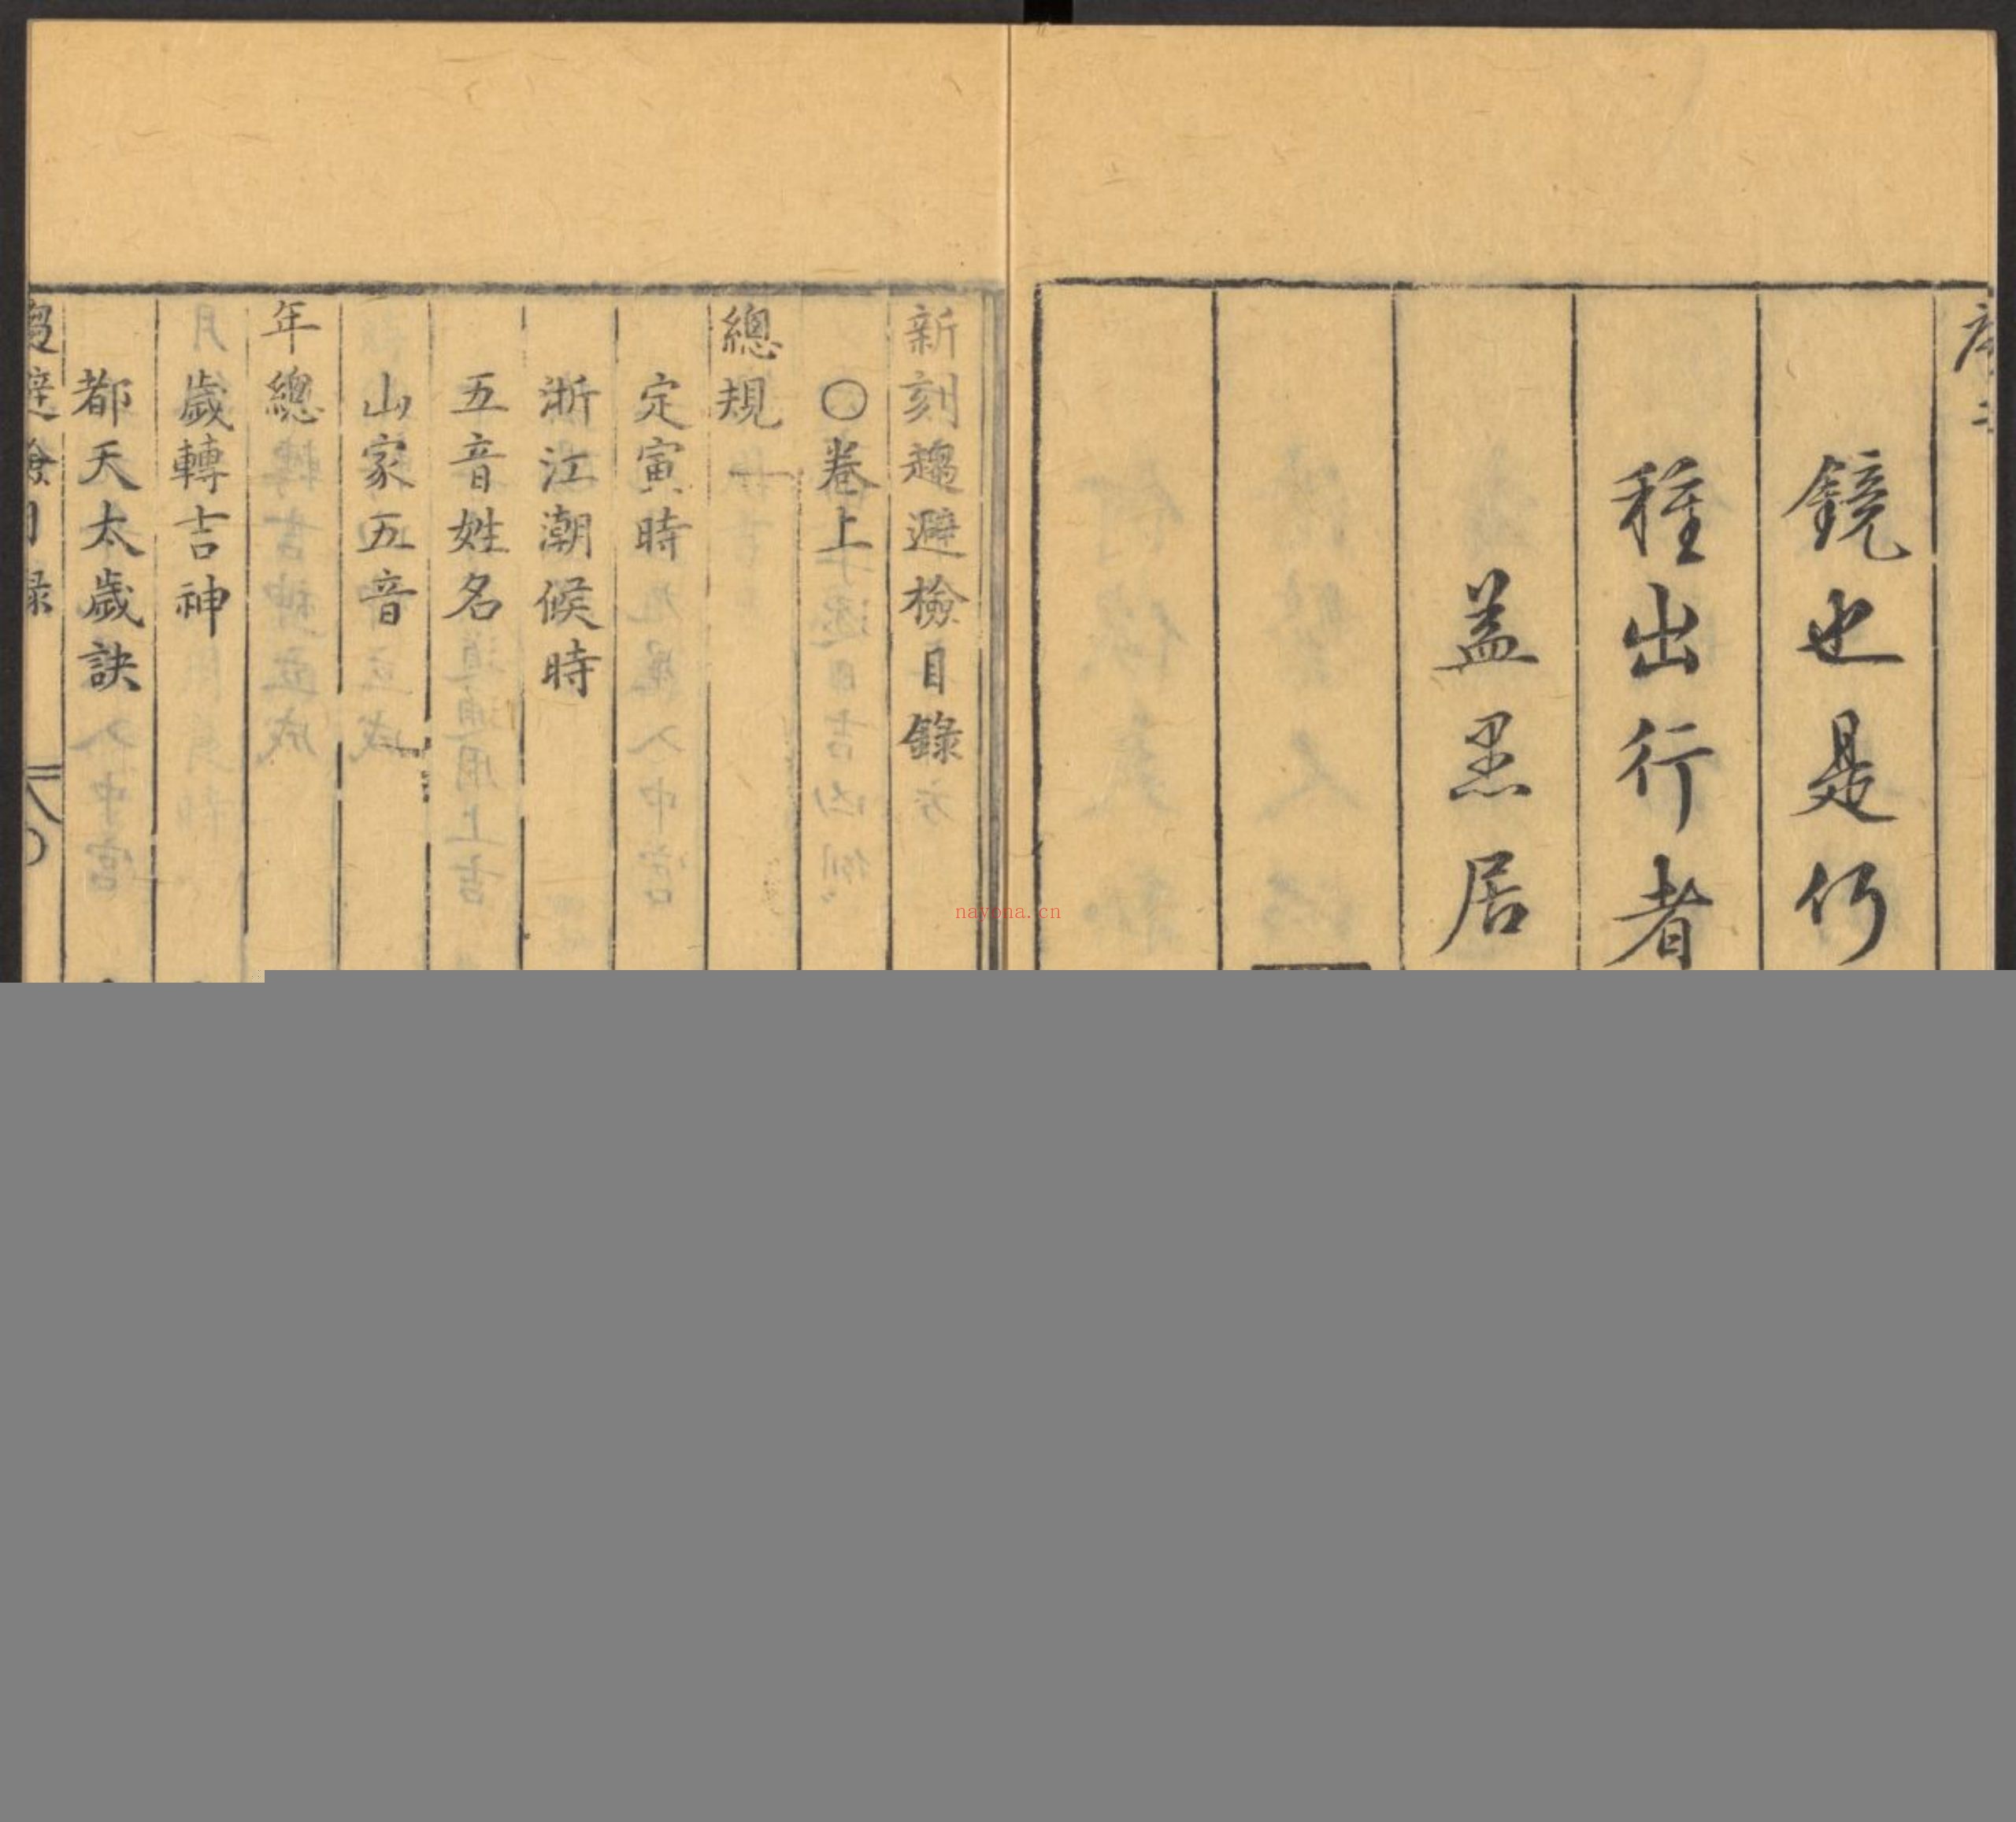 鏡也是仍
種出行者
盖黑居
新刻趨避檢目錄
○卷上
總規
定寅時
浙江潮候時
五音姓名
山家五音
年總
歲轉吉神
月
都天太歲訣
趨避檢目録
nayona.cn